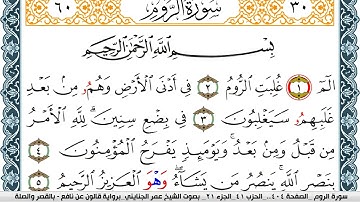 ٦٠ سُورَةُ الرُّومِ ٣٠
بِسْمِ اللَّهِ الرَّحْمَٰنِ الرَّحِيمِ
الٓمٓ ١ غُلِبَتِ الرُّومُ ٢ فِي أَدْنَى الْأَرْضِ وَهُمُۥ مِن بَعْدِ
غَلَبِهِمُۥ سَيَغْلِبُونَ ٣ فِي بِضْعِ سِنِينَ لِلَّهِ الْأَمْرُ
مِن قَبْلُ وَمِن بَعْدُ وَيَوْمَئِذٍ يَفْرَحُ الْمُؤْمِنُونَ ٤
بِنَصْرِ اللَّهِ يَنصُرُ مَن يَشَاءُ وَهْوَ الْعَزِيزُ الرَّحِيمُ ٥
سورة الروم الصفحة ٤٠٤.. الحزب ٤١ الجزء ٢١ - بصوت الشيخ عمر الجنايني - برواية قالون عن نافع - بالقصر والصلة